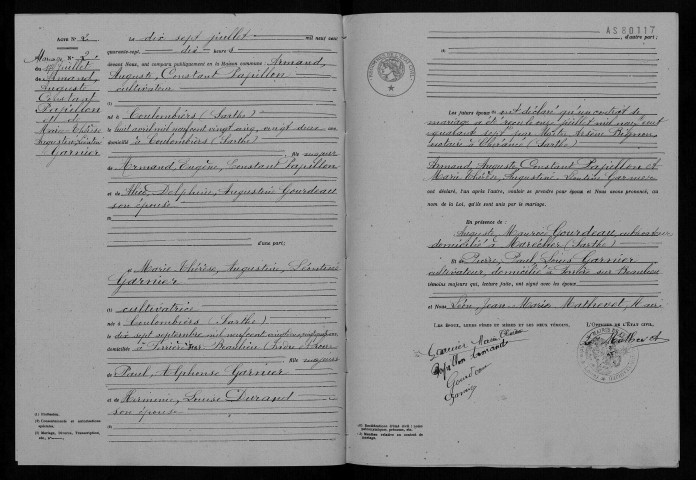 ACTE N° 2
Mariage N° 2
du 17 juillet
de Armand,
Auguste
Constant
Papillon
et de
Marie Thérèse
Augustine, Léontine
Garnier
Le dix sept juillet mil neuf cent
quarante-sept dix heures
devant Nous, ont comparu publiquement en la Maison commune : Armand,
Auguste, Constant Papillon
cultivateur
né à Coulombiers (Sarthe)
le huit avril mil neuf cent vingt cinq, vingt deux ans
domicilié à Coulombiers (Sarthe)
fils majeur
de Armand, Eugène, Constant Papillon
et Alice, Delphine, Augustine Gourdeau
son épouse
d'une part ;
et Marie Thérèse, Augustine, Léontine
Garnier
(1) cultivatrice
née à Coulombiers (Sarthe)
le dix sept septembre mil neuf cent
domiciliée à
fille majeure
de Paul, Alphonse Garnier
et Hermine, Louise Durand
son épouse
(1) Profession.
(2) Consentements et autorisations
spéciales.
(3) Mariage, Divorce, Transcription,
etc.
AS 80117
d'autre part ;
Les futurs époux ont déclaré qu'un contrat de
mariage a été reçu le onze juillet mil neuf cent
quarante sept par Maître
notaire à (Sarthe)
Armand, Auguste, Constant Papillon et
Marie Thérèse, Augustine Léontine Garnier
ont déclaré, l'un après l'autre, vouloir se prendre pour époux et Nous avons prononcé, au
nom de la Loi, qu'ils sont unis par le mariage.
En présence de :
Auguste, Maurice Gourdeau, cultivateur
domicilié à (Sarthe)
Et de Pierre, Paul, Louis Garnier
cultivateur, domicilié à sur Beaulieu
témoins majeurs qui, lecture faite, ont signé avec les époux
et Nous Léon, Jean Marie Mathevet, Maire
LES ÉPOUX, LEURS PÈRES ET MÈRES ET LES DEUX TÉMOINS,
L'OFFICIER DE L'ÉTAT CIVIL,
Garnier Marie Thérèse
Papillon Armand
Gourdeau
Garnier